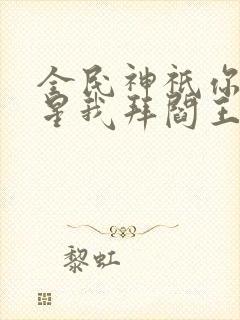 全民神祇你
星我拜阎王
黎虹